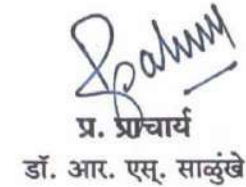 प्र. प्राचार्य
डॉ. आर. एस्. साळुंखे